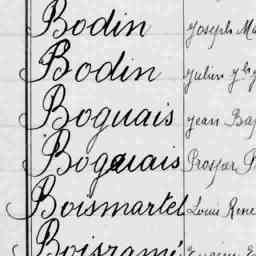 Bodin Joseph Ma
Bodin Julien
Boguais Jean Bap
Boguais Prosper P
Boismartel Louis Rene
Boisramé Eugène E